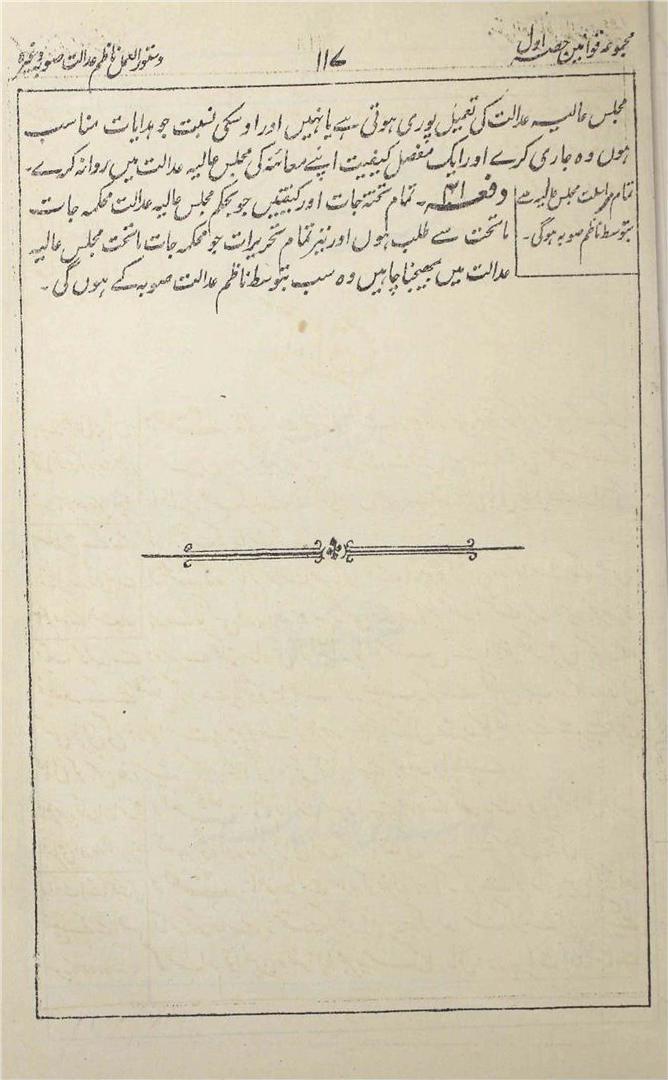 مجموعہ قوانین حصہ اول
۱۱۷
دستور العمل ناظم عدالت صوبہ وغیرہ
مجلس عالیہ عدالت کی تعمیل پوری ہوتی ہے یا نہیں اور اوسکی نسبت جو ہدایات مناسب
ہوں وہ جاری کرے اور ایک مفصل کیفیت اپنے معائنہ کی مجلس عالیہ عدالت میں روانہ کرے۔
تمام مراسلت مجلس عالیہ سے
بتوسط ناظم صوبہ ہوگی۔
دفعہ ۳۱۔ تمام تختہ جات اور کیفیتیں جو بحکم مجلس عالیہ عدالت محکمہ جات
ماتحت سے طلب ہوں اور نیز تمام تحریرات جو محکمہ جات ماتحت مجلس عالیہ
عدالت میں بھیجنا چاہیں وہ سب بتوسط ناظم عدالت صوبہ کے ہوں گی۔